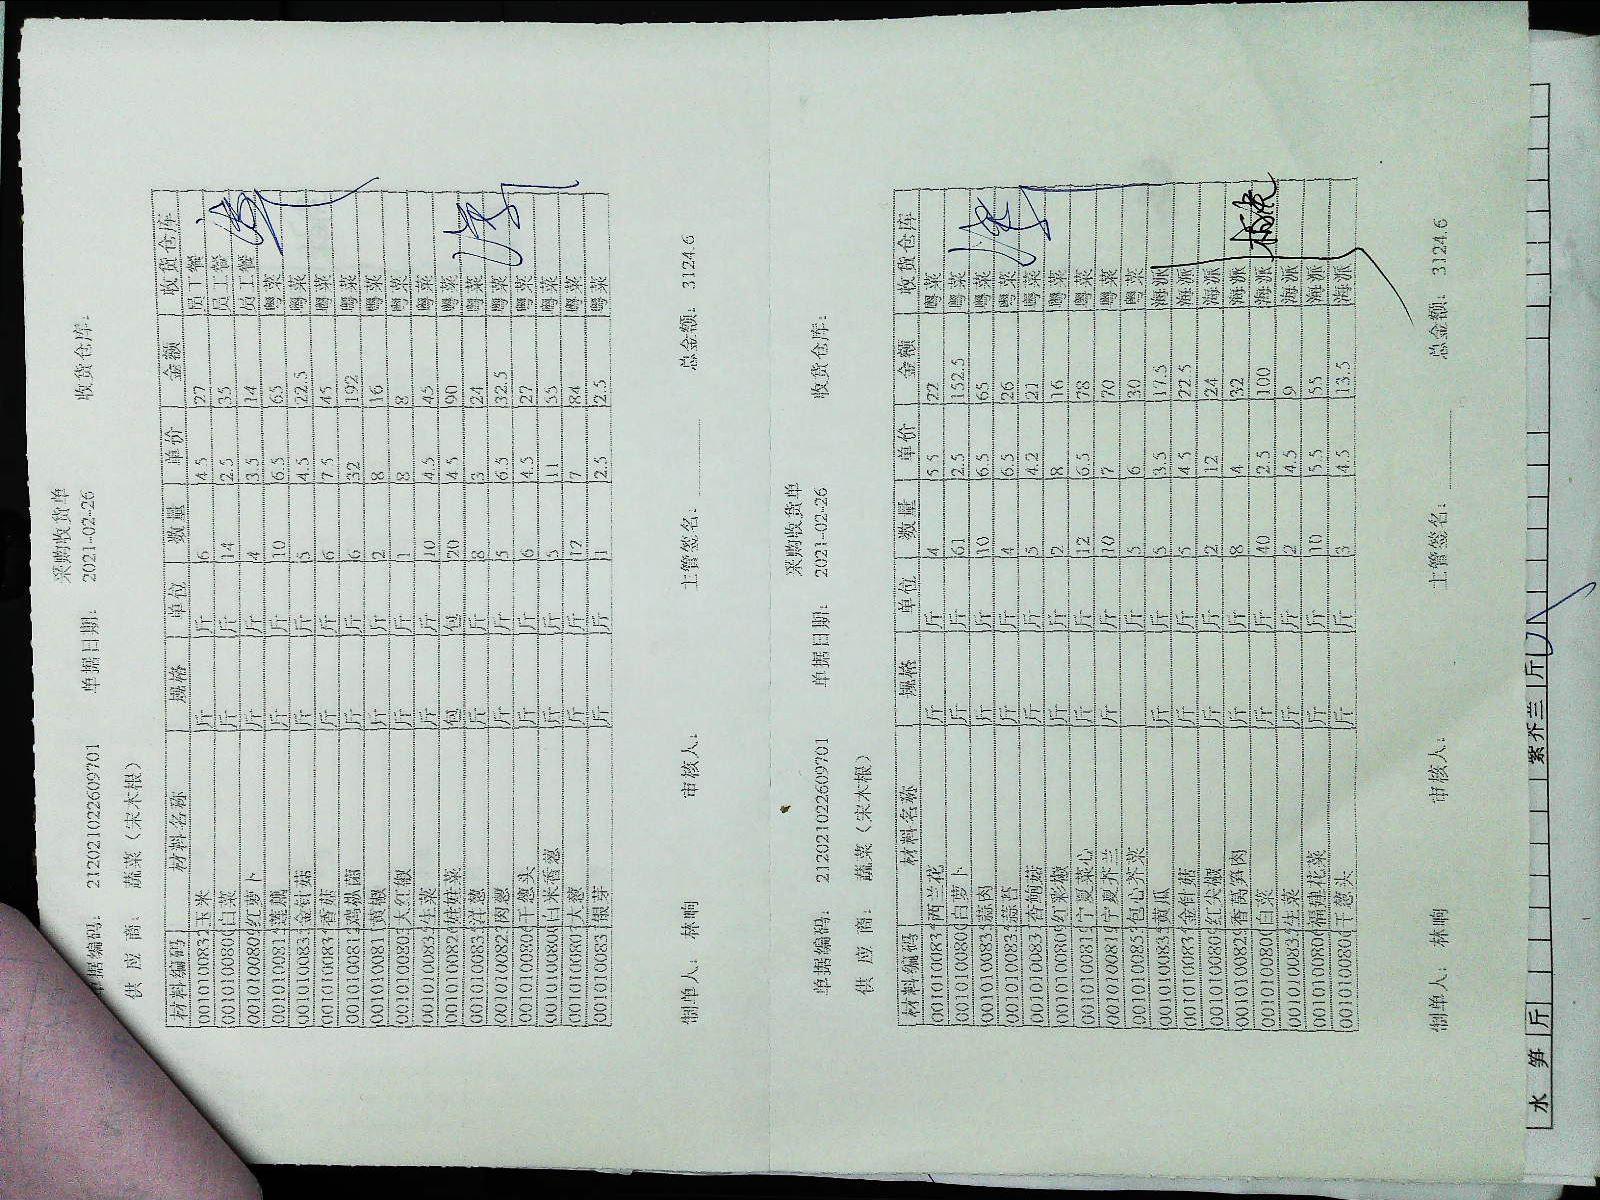 采购收货单
单据编码： 212021022609701 单据日期： 2021-02-26 收货仓库：
供 应 商： 蔬菜（宋木根）
材料编码 材料名称 规格 单位 数量 单价 金额 收货仓库
0010100832 玉米 斤 斤 6 4.5 27 员工餐
001010080 白菜 斤 斤 14 2.5 35 员工餐
001010080 红萝卜 斤 斤 4 3.5 14 员工餐
001010081 莲藕 斤 斤 10 6.5 65 粤菜
001010083 金针菇 斤 斤 5 4.5 22.5 粤菜
001010083 香菇 斤 斤 6 7.5 45 粤菜
001010081 鸡枞菌 斤 斤 6 32 192 粤菜
001010081 黄椒 斤 斤 2 8 16 粤菜
001010080 大红椒 斤 斤 1 8 8 粤菜
001010083 生菜 斤 斤 10 4.5 45 粤菜
001010082 娃娃菜 包 包 20 4.5 90 粤菜
001010083 洋葱 斤 斤 8 3 24 粤菜
001010082 肉葱 斤 斤 5 6.5 32.5 粤菜
001010080 干葱头 斤 斤 6 4.5 27 粤菜
001010080 白米香葱 斤 斤 5 11 55 粤菜
001010080 大葱 斤 斤 12 7 84 粤菜
001010083 银芽 斤 斤 1 2.5 2.5 粤菜
制单人： 林响 审核人： 主管签名： 总金额： 3124.6
采购收货单
单据编码： 212021022609701 单据日期： 2021-02-26 收货仓库：
供 应 商： 蔬菜（宋木根）
材料编码 材料名称 规格 单位 数量 单价 金额 收货仓库
001010083 西兰花 斤 斤 4 5.5 22 粤菜
001010080 白萝卜 斤 斤 61 2.5 152.5 粤菜
001010083 蒜肉 斤 斤 10 6.5 65 粤菜
001010083 蒜苔 斤 斤 4 6.5 26 粤菜
001010083 杏鲍菇 斤 斤 5 4.2 21 粤菜
001010080 红彩椒 斤 斤 2 8 16 粤菜
001010081 宁夏菜心 斤 斤 12 6.5 78 粤菜
001010081 宁夏芥兰 斤 斤 10 7 70 粤菜
001010085 包心芥菜 斤 5 6 30 粤菜
001010083 黄瓜 斤 斤 5 3.5 17.5 海派
001010083 金针菇 斤 斤 5 4.5 22.5 海派
001010080 红尖椒 斤 斤 2 12 24 海派
001010082 香莴笋肉 斤 斤 8 4 32 海派
001010080 白菜 斤 斤 40 2.5 100 海派
001010083 生菜 斤 斤 2 4.5 9 海派
001010080 福建花菜 斤 斤 10 5.5 55 海派
001010080 干葱头 斤 斤 3 4.5 13.5 海派
制单人： 林响 审核人： 主管签名： 总金额： 3124.6
水 笋 斤 紫芥兰 斤